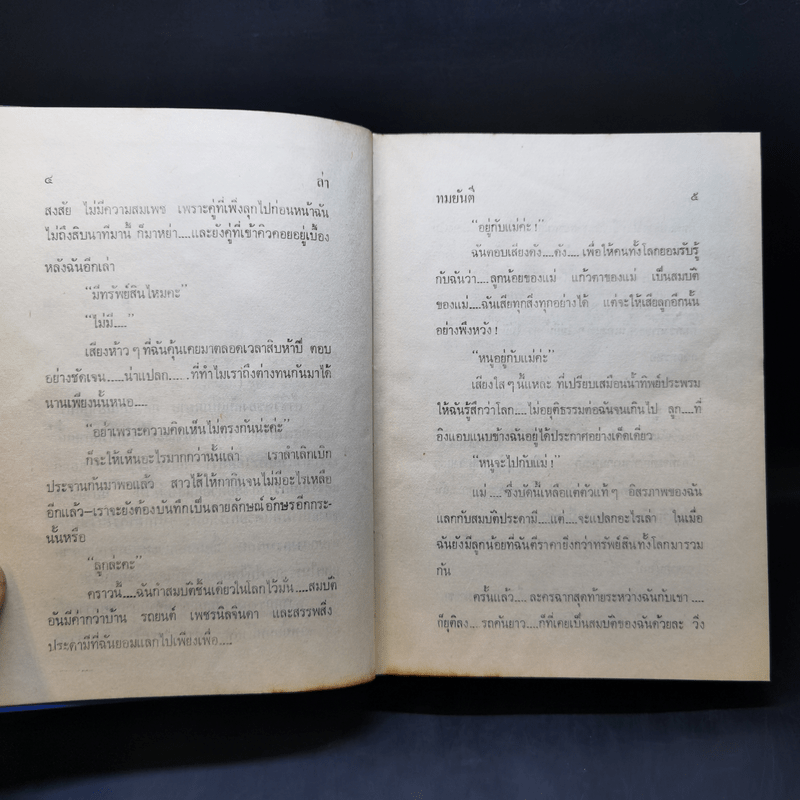 ๔ ล่า
สงสัย ไม่มีความสมเพช เพราะคู่ที่เพิ่งลุกไปก่อนหน้าฉัน
ไม่ถึงสิบนาทีมานี้ ก็มาหย่า....และยังคู่ที่เข้าคิวคอยอยู่เบื้อง
หลังฉันอีกเล่า
“มีทรัพย์สินไหมคะ”
“ไม่มี....”
เสียงห้าว ๆ ที่ฉันคุ้นเคยมาตลอดเวลาสิบห้าปี ตอบ
อย่างชัดเจน.....น่าแปลก.....ที่ทำไมเราถึงต่างทนกันมาได้
นานเพียงนั้นหนอ....
“อย่าเพราะความคิดเห็นไม่ตรงกันนะคะ”
ก็จะให้เห็นอะไรมากกว่านั้นเล่า เราลำเลิกเบิก
ประจานกันมาพอแล้ว สาวไส้ให้กากินจนไม่มีอะไรเหลือ
อีกแล้ว–เราจะยังต้องบันทึกเป็นลายลักษณ์อักษรอีกกระ-
นั้นหรือ
“ลูกล่ะคะ”
คราวนี้....ฉันกำสมบัติชิ้นเดียวในโลกไว้มั่น....สมบัติ
อันมีค่ากว่าบ้าน รถยนต์ เพชรนิลจินดา และสรรพสิ่ง
ประดามีที่ฉันยอมแลกไปเพียงเพื่อ....
ทมยันตี ๕
“อยู่กับแม่ค่ะ!”
ฉันตอบเสียงดัง....ดัง....เพื่อให้คนทั้งโลกยอมรับรู้
กับฉันว่า....ลูกน้อยของแม่ แก้วตาของแม่ เป็นสมบัติ
ของแม่....ฉันเสียทุกสิ่งทุกอย่างได้ แต่จะให้เสียลูกอีกนั้น
อย่าพึงหวัง!
“หนูอยู่กับแม่ค่ะ”
เสียงใส ๆ นี้แหละ ที่เปรียบเสมือนน้ำทิพย์ประพรม
ให้ฉันรู้สึกว่าโลก....ไม่อยุติธรรมต่อฉันจนเกินไป ลูก....ที่
อิงแอบแนบข้างฉันอยู่ได้ประกาศอย่างเด็ดเดี่ยว
“หนูจะไปกับแม่!”
แม่....ซึ่งบัดนี้เหลือแต่ตัวแท้ ๆ อิสรภาพของฉัน
แลกกับสมบัติประดามี....แต่....จะแปลกอะไรเล่า ในเมื่อ
ฉันยังมีลูกน้อยที่ฉันตีราคายิ่งกว่าทรัพย์สินทั้งโลกมารวม
กัน
ครั้นแล้ว....ละครฉากสุดท้ายระหว่างฉันกับเขา....
ก็ยุติลง....รถคันยาว....ก็ที่เคยเป็นสมบัติของฉันด้วยละ วิ่ง